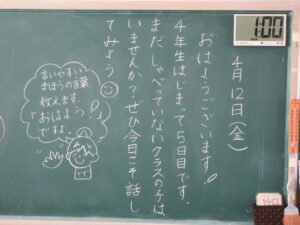 4月12日(金)
おはようございます!
4年生はじまって5日目です。
まだしゃべっていないクラスの子は
いませんか?ぜひ今日こそ話し
てみよう
言いやすい
まほうの言葉
教えます。
「おはよう!」
ですよ。
1:00